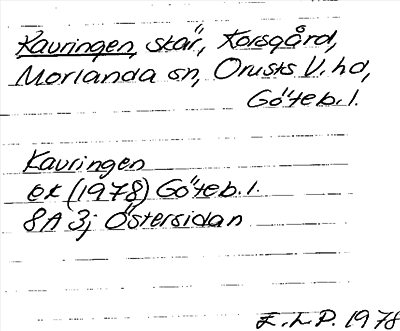 Kauringen, skär, Korsgård,
Morlanda sn, Orusts V. hd,
Göteb. l.
Kauringen
ek (1978) Göteb. l.
8A 3j Östersidan
E.L.P. 1978